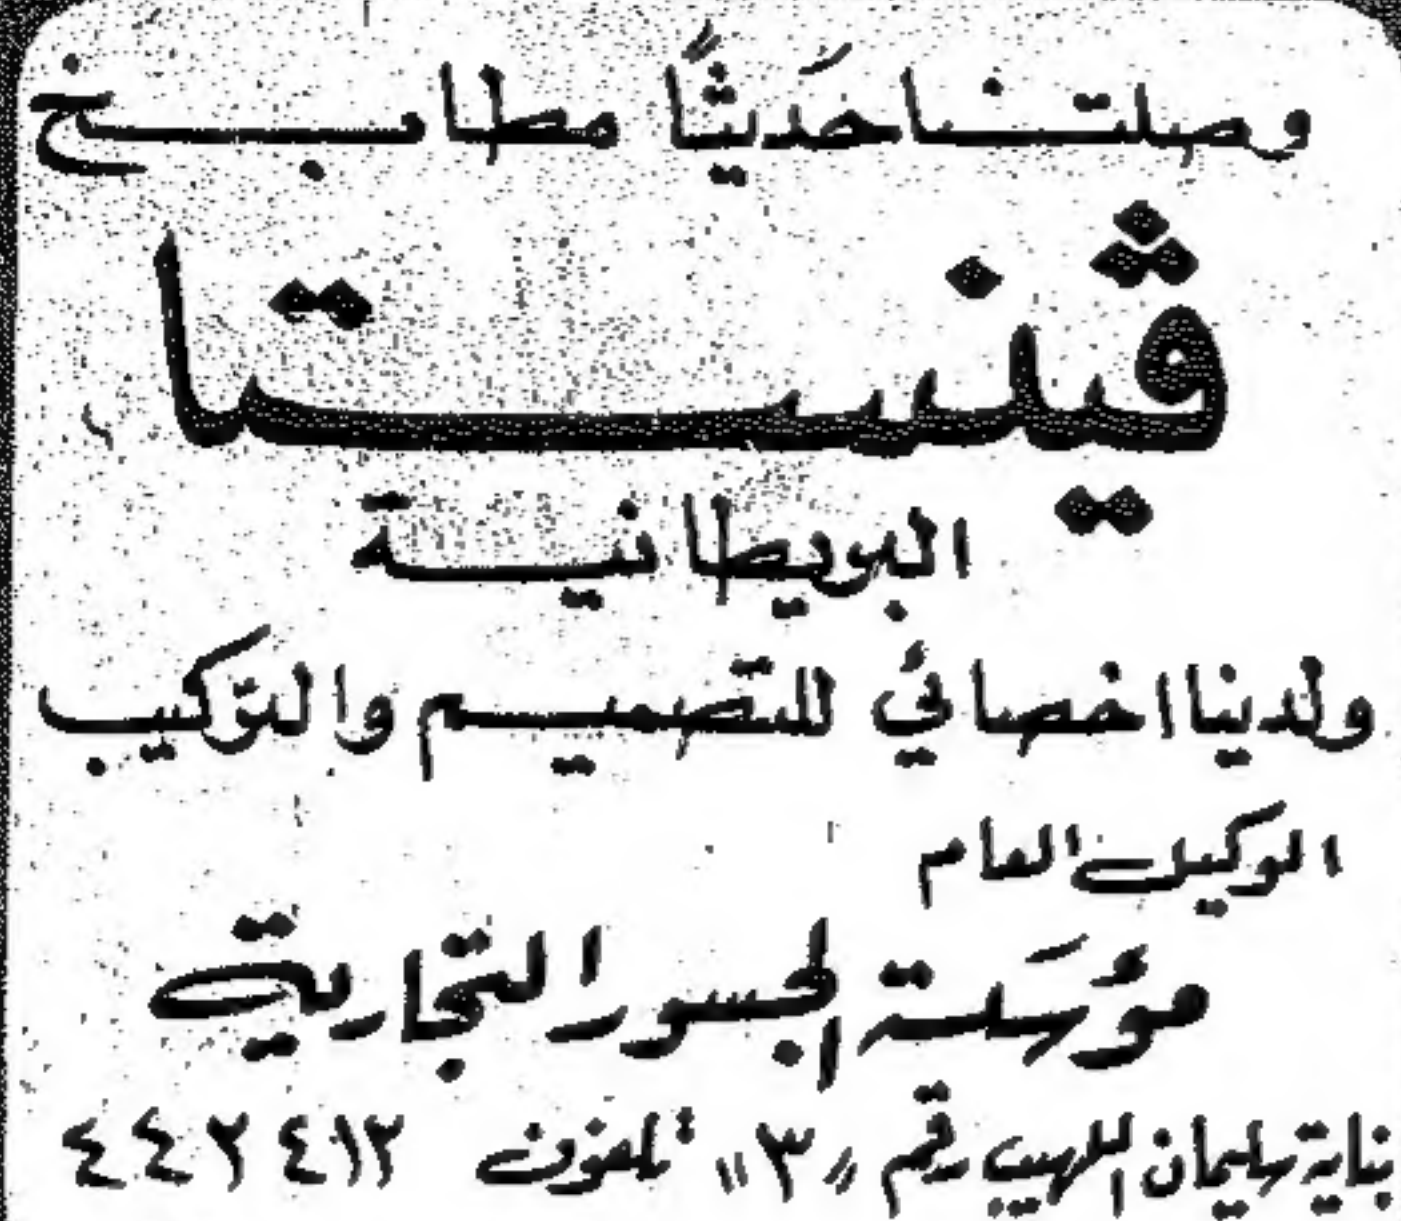 وصلتنا حَديثًا مطابخ
ڤينستا
البريطانية
ولدينا اخصائي للتصميم والتركيب
الوكيل العام
مؤسَسة الجسور التجارية
بناية سليمان اللهيب رقم «٣» تلفون ٤٤٢٤١٢